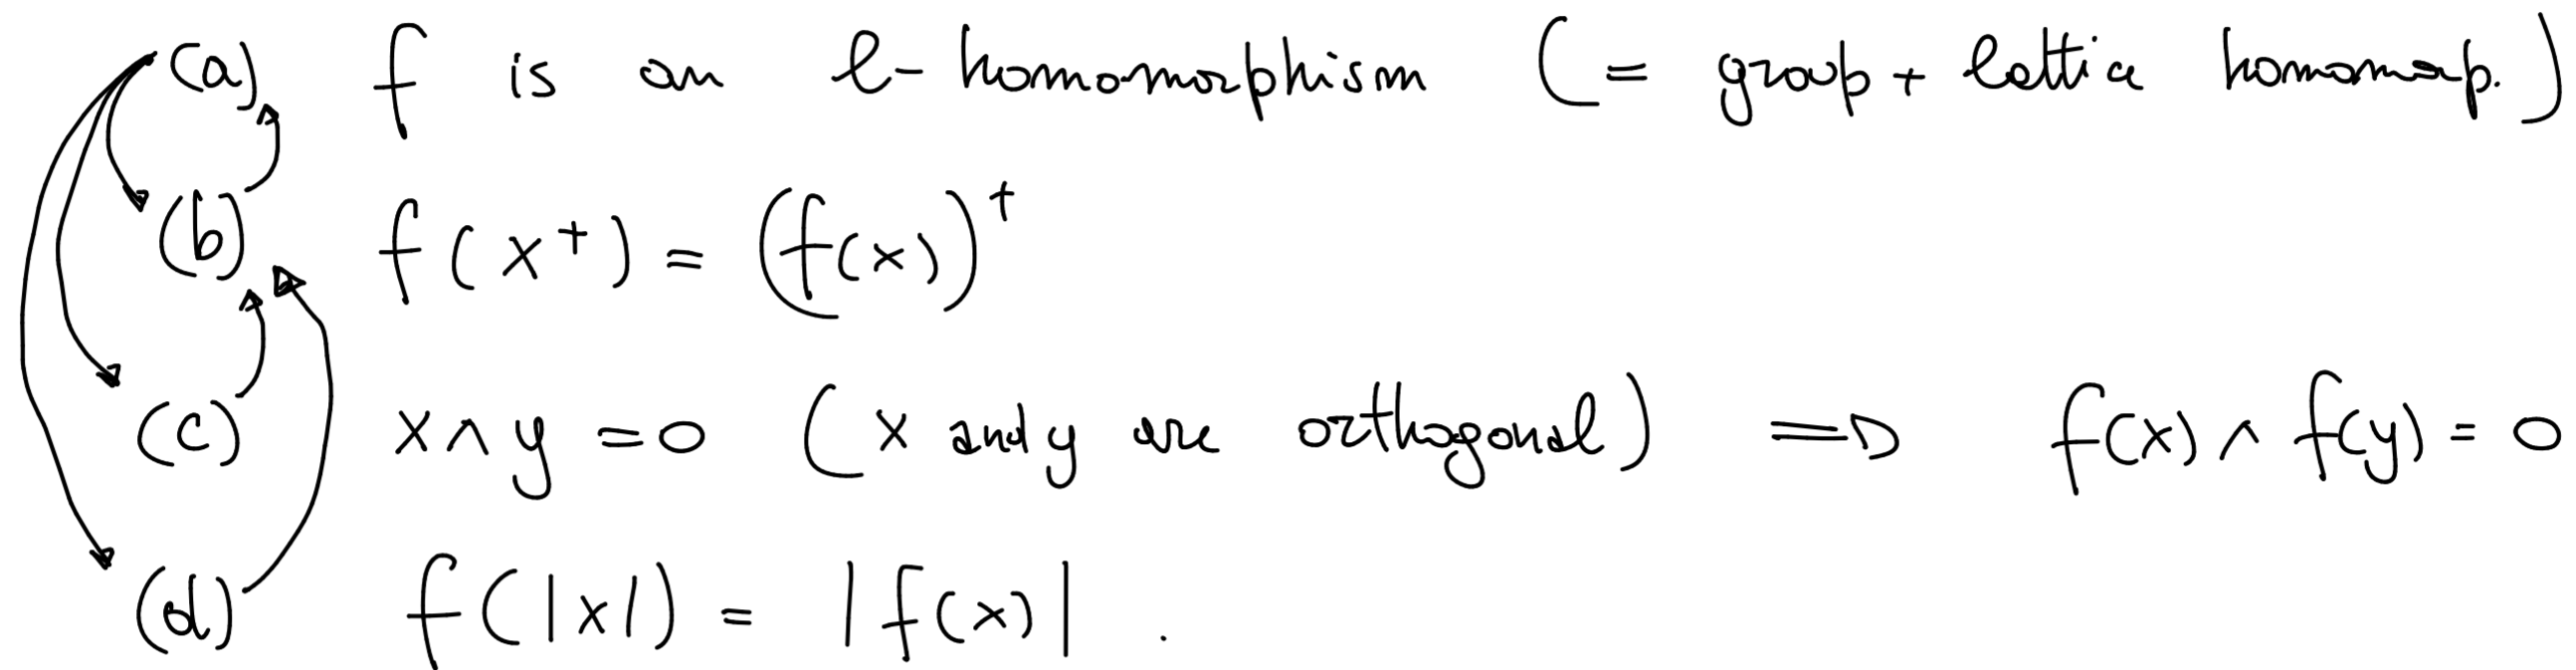 (a) f is an ℓ-homomorphism (= group + lattice homomorp.)
(b) f(x⁺) = (f(x))⁺
(c) x ∧ y = 0 (x and y are orthogonal) ⇒ f(x) ∧ f(y) = 0
(d) f(|x|) = |f(x)| .